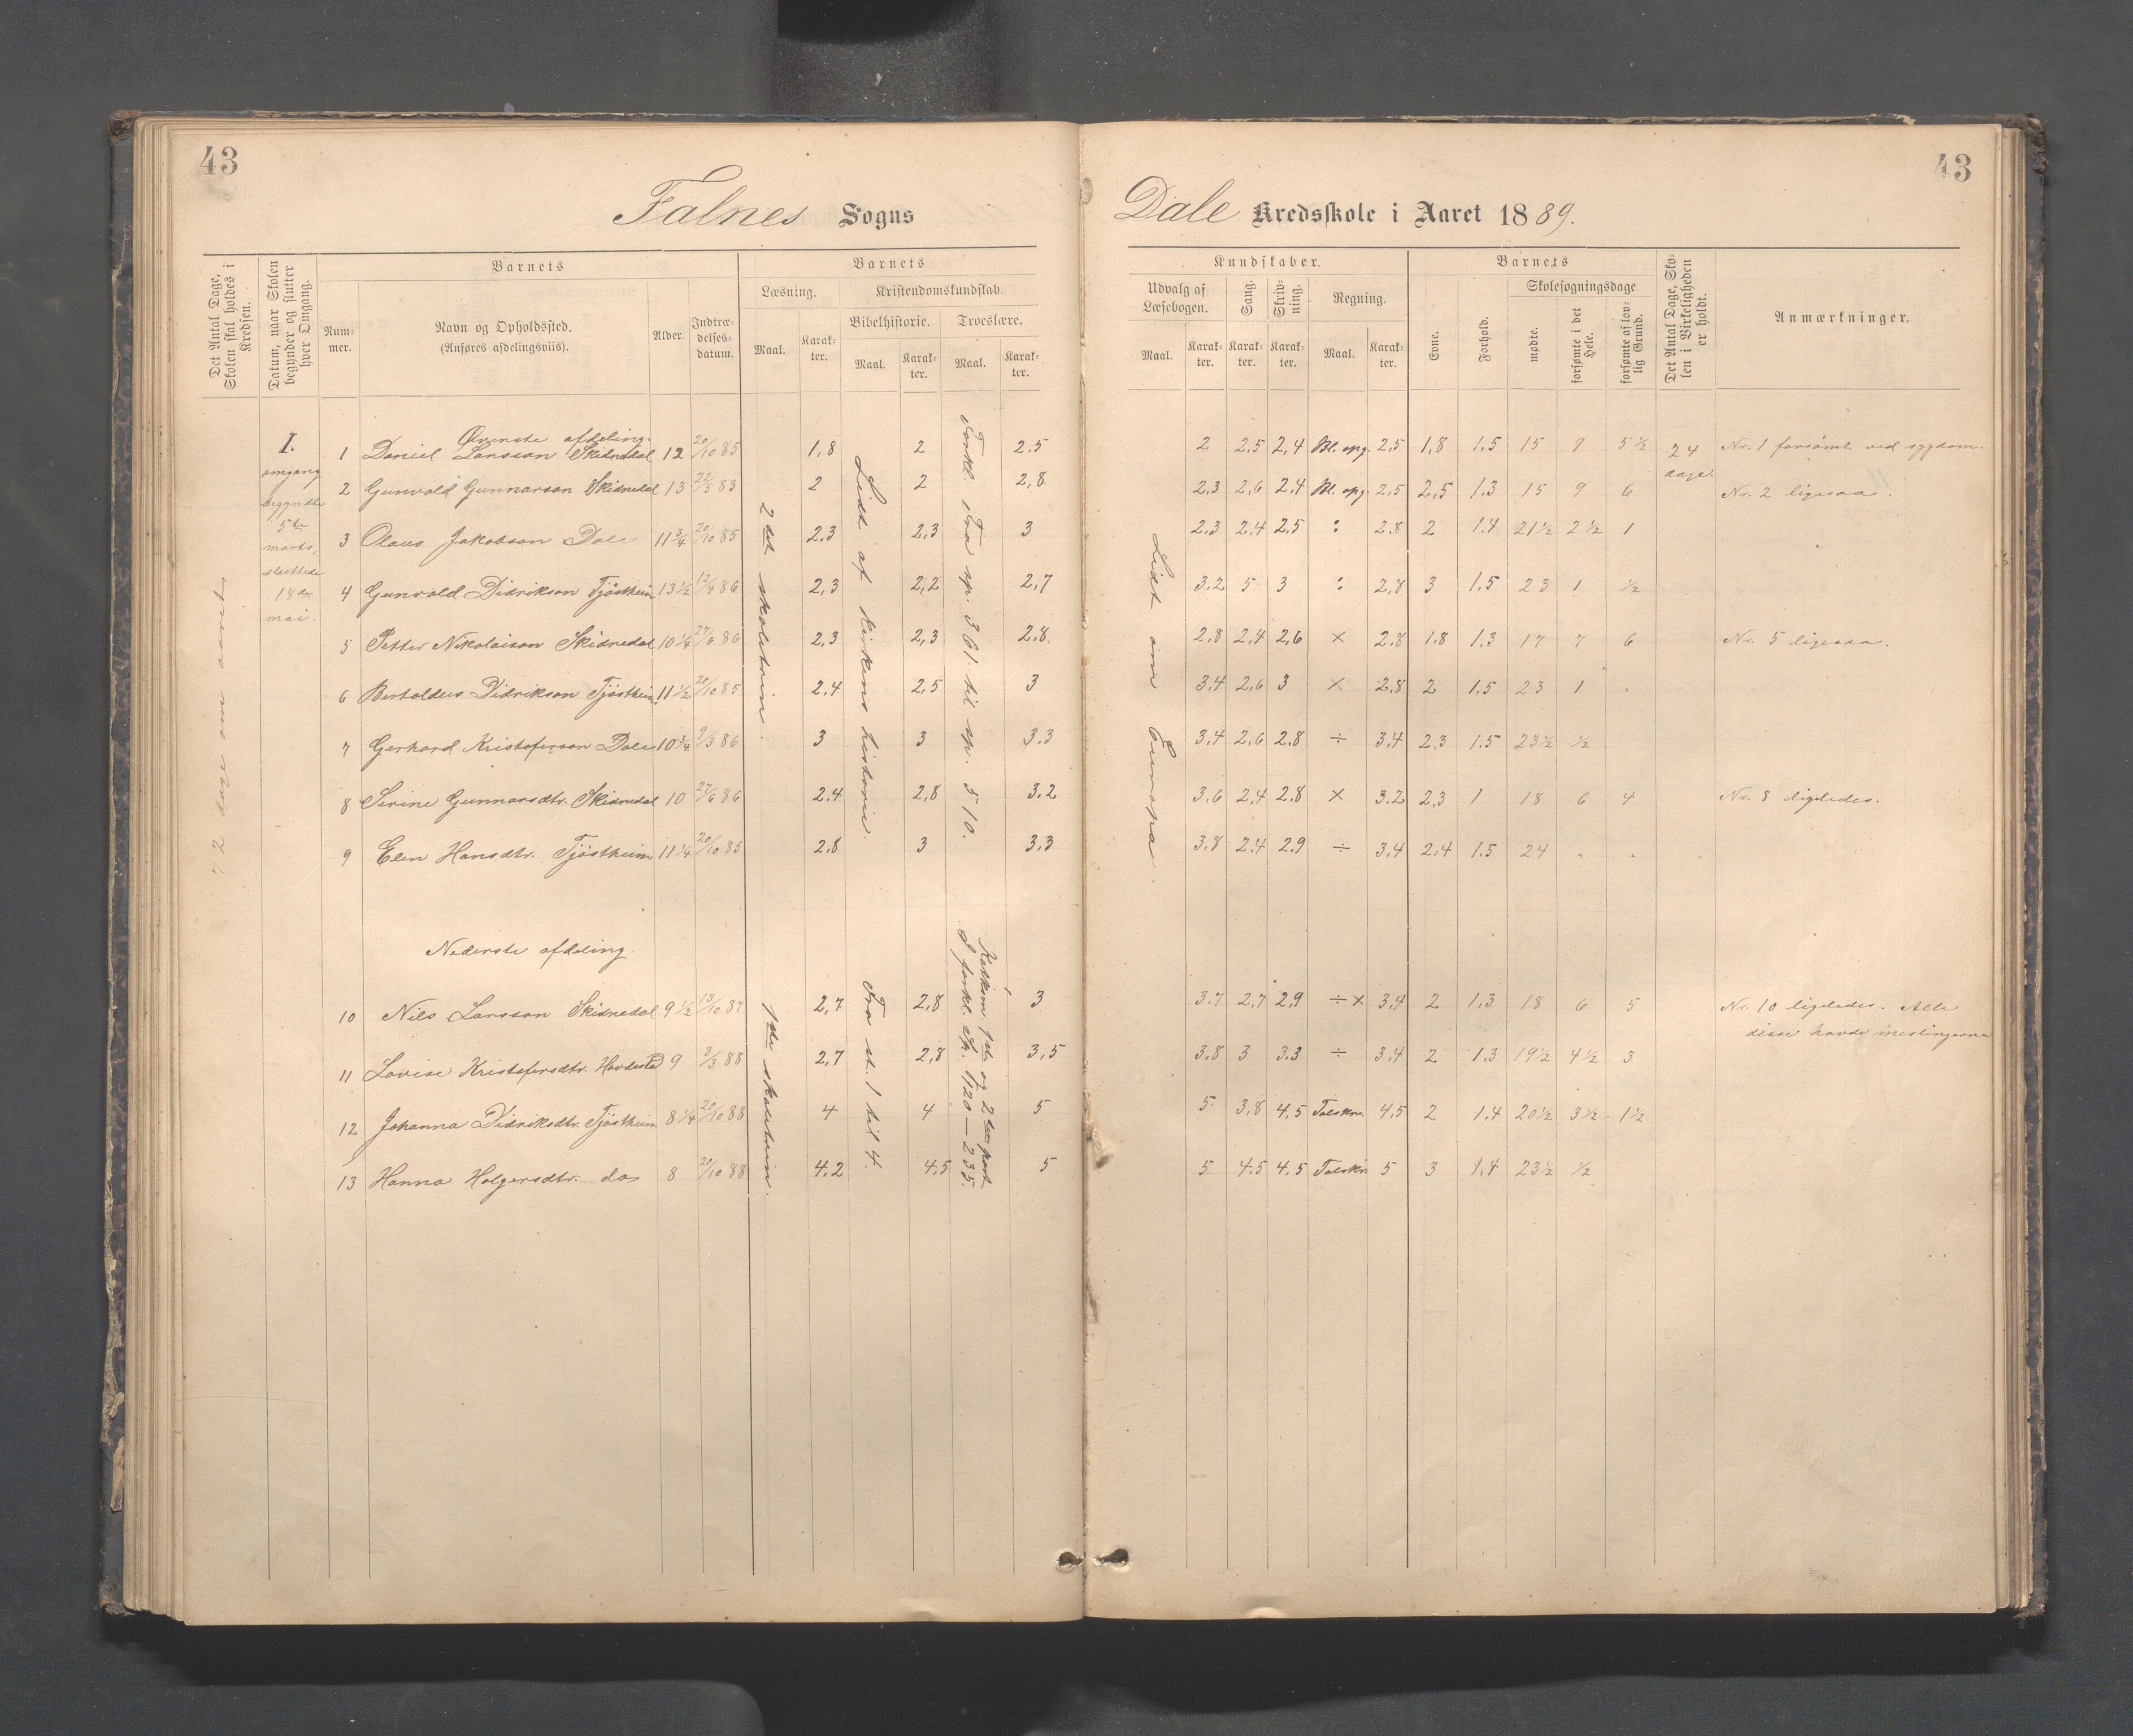 43
43
Falnes Sogns
Dale Kredsskole i Aaret 1889.
Det Antal Dage, Skolen skal holdes i Kredsen.
Datum, naar Skolen begynder og slutter hver Omgang.
Barnets
Num-mer.
Navn og Opholdssted.
(Anføres afdelingsviis).
Alder.
Indtræ-delses-datum.
Barnets
Læsning.
Kristendomskundskab.
Bibelhistorie.
Troeslære.
Maal.
Karak-ter.
Maal.
Karak-ter.
Maal.
Karak-ter.
Kundskaber.
Udvalg af Læsebogen.
Sang.
Skriv-ning.
Regning.
Maal.
Karak-ter.
Karak-ter.
Karak-ter.
Maal.
Karak-ter.
Barnets
Evne.
Forhold.
Skolesøgningsdage
mødte.
forsømte i det Hele.
forsømte af lov-lig Grund.
Det Antal Dage, Sko-len i Virkeligheden er holdt.
Anmærkninger.
72 dage om aaret
I.
omgang
begyndte
5te
marts,
sluttede
18de
mai.
Øverste afdeling.
1 Daniel Larsson Skidnedal 12 20/10 85 1,8 2 2.5 2 2.5 2,4 Bl. opg. 2,5 1,8 1.5 15 9 5 1/2 24 dage. Nr. 1 forsömt ved sygdom.
2 Gunvald Gunnarson Skidnedal 13 22/5 83 2 2 2,8 2,3 2,6 2.4 Bl. opg. 2,5 2,5 1.3 15 9 6 Nr. 2 ligesaa.
3 Olaus Jakobson Dale 11 3/4 20/10 85 2,3 2,3 3 2.3 2.4 2.5 : 2.8 2 1.4 21 1/2 2 1/2 1
4 Gunvald Didrikson Tjöstheim 13 1/2 12/4 86 2,3 2,2 2,7 3.2 5 3 : 2,8 3 1.5 23 1 1/2
5 Petter Nikolaison Skidnedal 10 1/4 27/6 86 2,3 2,3 2.8. 2,8 2,4 2,6 × 2.8 1.8 1.3 17 7 6 Nr. 5 ligesaa.
6 Bertoldus Didrikson Tjöstheim 11 1/2 20/10 85 2,4 2,5 3 3,4 2,6 3 × 2,8 2 1.5 23 1 .
7 Gerhard Kristoferson Dale 10 3/4 9/3 86 3 3 3.3 3,4 2,6 2.8 ÷ 3,4 2,3 1.5 23 1/2 1/2
8 Serine Gunnarsdtr. Skidnedal 10 27/6 86 2.4 2,8 3.2 3.6 2,4 2.8 × 3.2 2,3 1 18 6 4 Nr. 8 ligeledes.
9 Elen Hansdtr. Tjöstheim 11 1/4 20/10 85 2.8 3 3.3 3,8 2.4 2.9 ÷ 3,4 2,4 1.5 24 . .
2det skoletrin.
Lidt af kirkens historie.
Forkl. Fra sp. 361 til sp. 510.
Lidt om Europa.
Nederste afdeling.
10 Nils Larsson Skidnedal 9 1/2 13/10 87 2,7 2,8 3 3.7 2,7 2,9 ÷ × 3,4 2 1.3 18 6 5 Nr. 10 ligeledes. Alle disse havde meslingerne
11 Lovise Kristofersdtr. 9 3/3 88 2,7 2,8 3,5 3,8 3 3.3 ÷ 3,4 2 1.3 19 1/2 4 1/2 3
12 Johanna Didriksdtr. Tjöstheim 8 1/4 20/10 88 4 4 5 5 3,8 4,5 Talskr. 4,5 2 1.4 20 1/2 3 1/2 1 1/2
13 Hanna Holgersdtr. do 8 20/10 88 4.2 4,5 5 5 4.5 4.5 Talskr. 5 3 1.4 23 1/2 1/2
1ste skoletrin.
Fra st. 1 til 4.
Katkism. 1ste og 2den part
I forkl. Sp. 120 — 235.